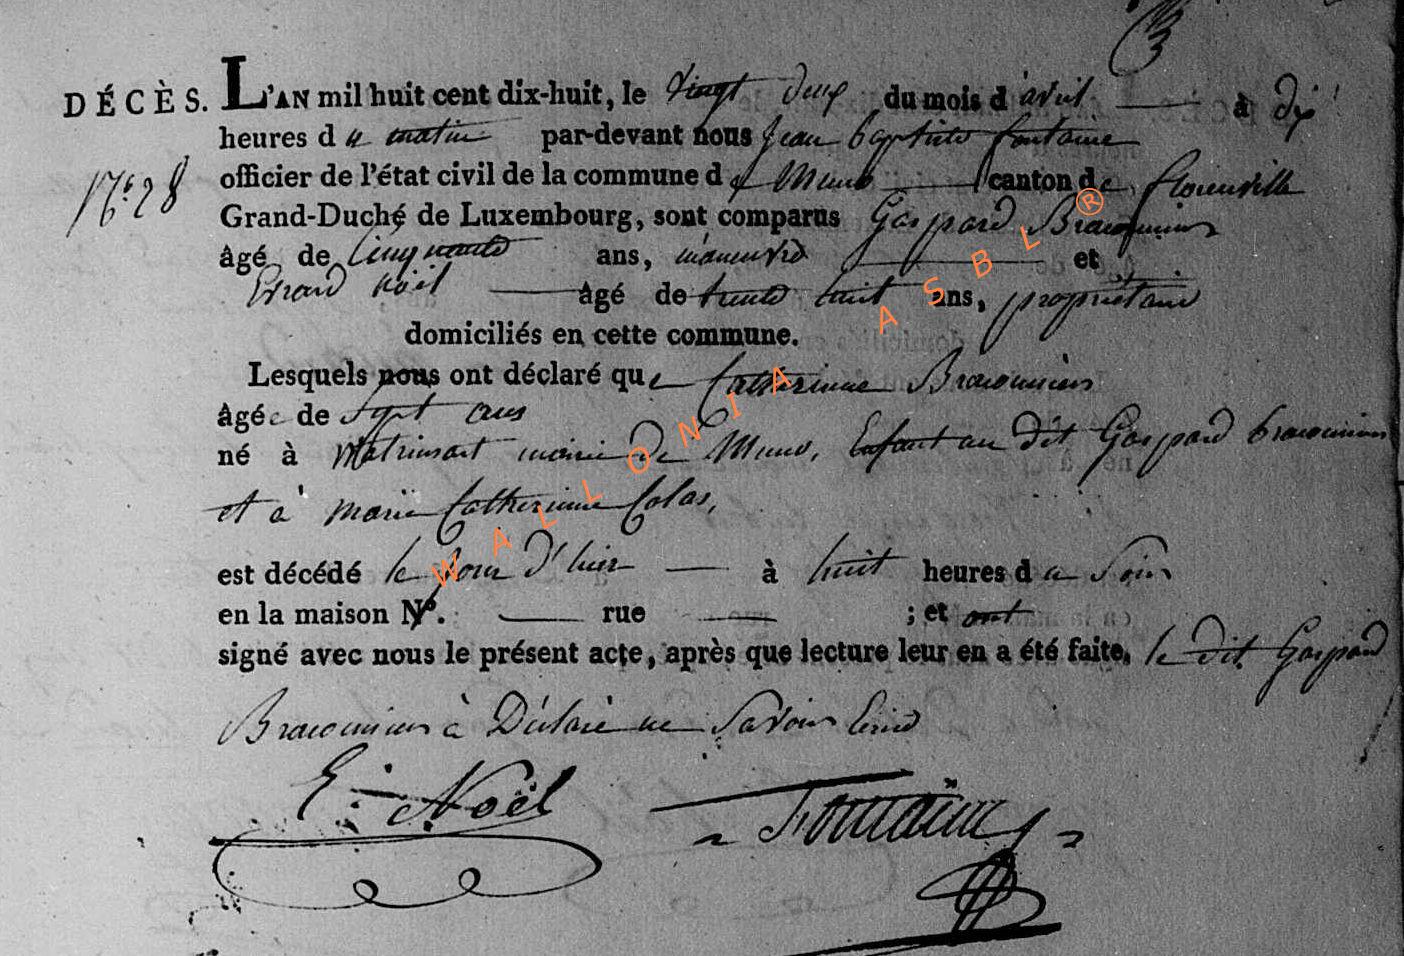 DÉCÈS. L'AN mil huit cent dix-huit, le vingt deux du mois d'avril à dix
heures du matin par-devant nous Jean baptiste fontaine
N° 28
officier de l'état civil de la commune de Muno canton de florenville
Grand-Duché de Luxembourg, sont comparus Gaspard Braconnier
âgé de Cinquante ans, manœuvre et
Erard Noël âgé de trente huit ans, propriétaire
domiciliés en cette commune.
Lesquels nous ont déclaré que Catherinne Braconnier
âgée de Sept ans
né à mairie de Muno, Enfant au dit Gaspard braconnier
et à marie Catherinne Colas,
est décédé le jour d'hier à huit heures du Soir
en la maison N°. rue ; et ont
signé avec nous le présent acte, après que lecture leur en a été faite, le dit Gaspard
Braconnier à Déclaré ne Savoir
E. Noël Fontaine
WALLONIA ASBL ®